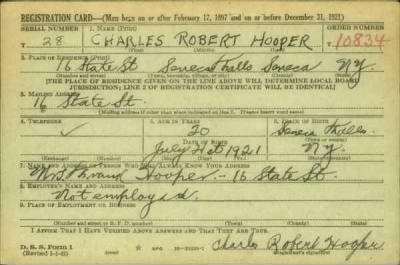 REGISTRATION CARD—(Men born on or after February 17, 1897 and on or before December 31, 1921)
SERIAL NUMBER 1. NAME (Print) ORDER NUMBER
T 28 CHARLES ROBERT HOOPER 10834
(First) (Middle) (Last)
2. PLACE OF RESIDENCE (Print)
16 State St. Seneca Falls Seneca N.Y.
(Number and street) (Town, township, village, or city) (County) (State)
[THE PLACE OF RESIDENCE GIVEN ON THE LINE ABOVE WILL DETERMINE LOCAL BOARD
JURISDICTION; LINE 2 OF REGISTRATION CERTIFICATE WILL BE IDENTICAL]
3. MAILING ADDRESS
16 State St.
[Mailing address if other than place indicated on line 2. If same insert word same]
4. TELEPHONE 5. AGE IN YEARS 6. PLACE OF BIRTH
✓ 20 Seneca Falls
DATE OF BIRTH (Town or county)
July 21st 1921 N.Y.
(Mo.) (Day) (Yr.) (State or country)
7. NAME AND ADDRESS OF PERSON WHO WILL ALWAYS KNOW YOUR ADDRESS
Mrs. Hooper - 16 State St.
8. EMPLOYER'S NAME AND ADDRESS
Not employed
9. PLACE OF EMPLOYMENT OR BUSINESS
(Number and street or R. F. D. number) (Town) (County) (State)
I AFFIRM THAT I HAVE VERIFIED ABOVE ANSWERS AND THAT THEY ARE TRUE.
D. S. S. Form 1
(Revised 1-1-42) GPO Charles Robert Hooper
(Registrant's signature)